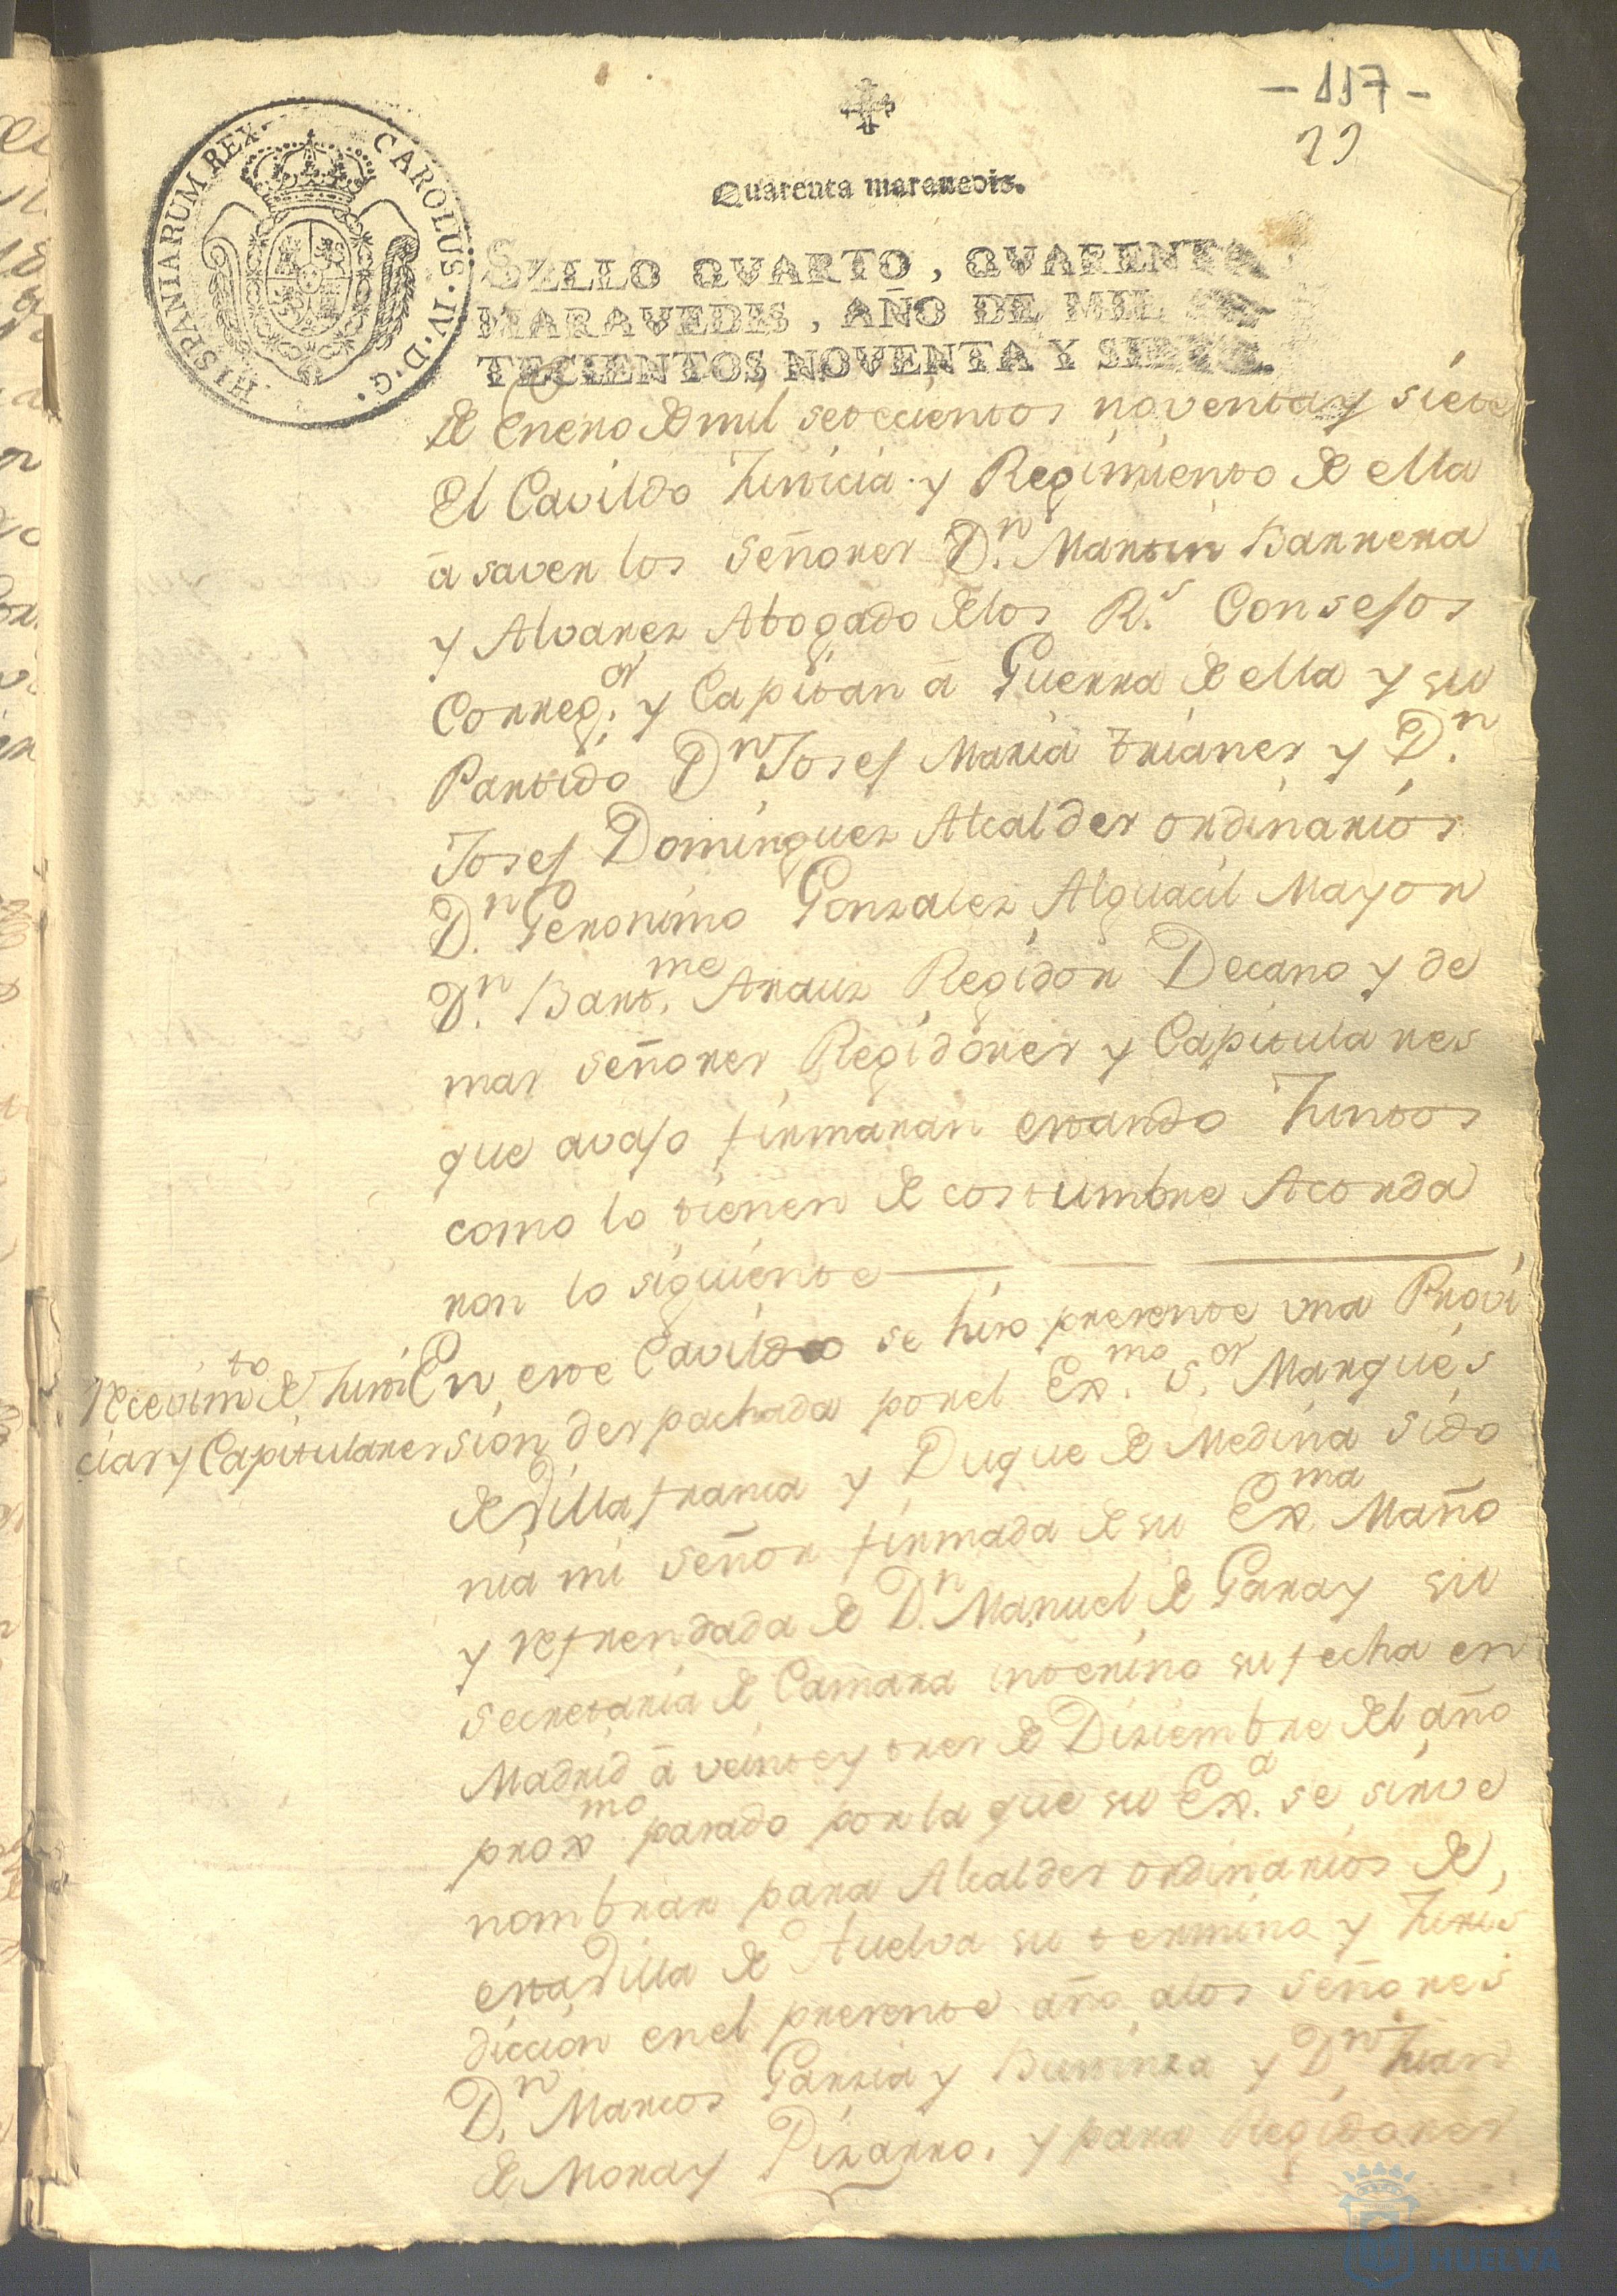 - 117 -
29
HISPANIARUM REX. CAROLUS. IV. D. G.
Quarenta maravedis.
SELLO QVARTO, QVARENTA
MARAVEDIS, AÑO DE MIL SE-
TECIENTOS NOVENTA Y SIETE.
de Enero de mil setecientos noventa y siete
El Cavildo Justicia y Regimiento de ella
á saver los Señores D.n Martin Barrera
y Alvarez Abogado de los R.s Consejos
Correg.or y Capitan á Guerra de ella y su
Partido D.n Josef Maria Trianes y D.n
Josef Dominguez Alcaldes ordinarios
D.n Geronimo Gonzalez Alguacil Mayor
D.n Bart.me Arauz Regidor Decano y de
mas Señores Regidores y Capitulares
que avajo firmaran estando Juntos
como lo tienen de costumbre Acorda
ron lo siguiente
Recevim.to de Justi
cias y Capitulares
En este Cavildo se hizo presente una Provi
sion despachada por el Ex.mo S.or Marqués
de Villafranca y Duque de Medina Sido
nia mi Señor firmada de su Ex.ma Maño
y refrendada de D.n Manuel de Garay su
Secretaria de Camara interino su fecha en
Madrid á veinte y tres de Diziembre del año
prox.mo pasado por la que su Ex.a se sirve
nombrar para Alcaldes ordinarios de
esta Villa de Huelva su termino y Juris
diccion en el presente año a los Señores
D.n Marcos Garzia y D.n Juan
de Mora y Pizarro. y para Regidores
HUELVA